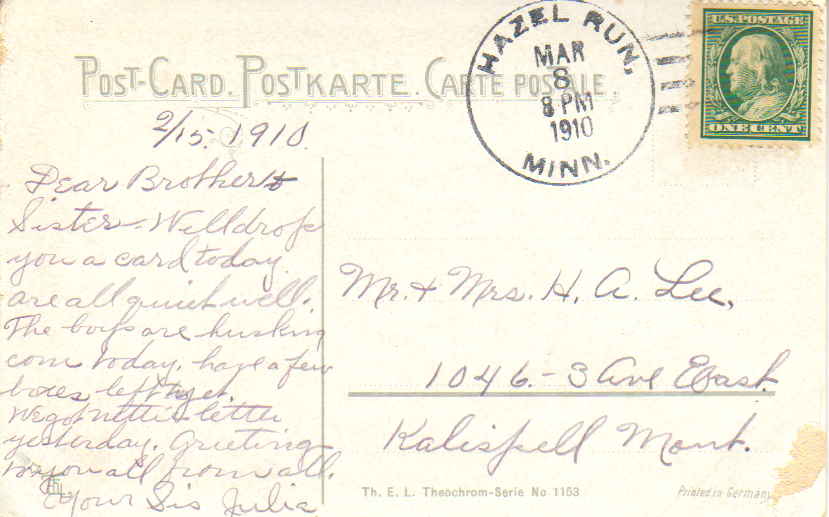 POST-CARD. POSTKARTE. CARTE POSTALE.
HAZEL RUN,
MAR
8
8 PM
1910
MINN.
U.S. POSTAGE
ONE CENT
2/15. 1910.
Dear Brother &
Sister - Will drop
you a card today.
are all quiet well.
The boys are husking
corn today. have a few
left yet.
We got Netties letter
yesterday. Greeting
to you all from all.
Your Sis Julia
Mr. & Mrs. H. A. Lee,
1046.- 3 Ave East.
Kalispell Mont.
Th. E. L. Theochrom-Serie No 1153
Printed in Germany